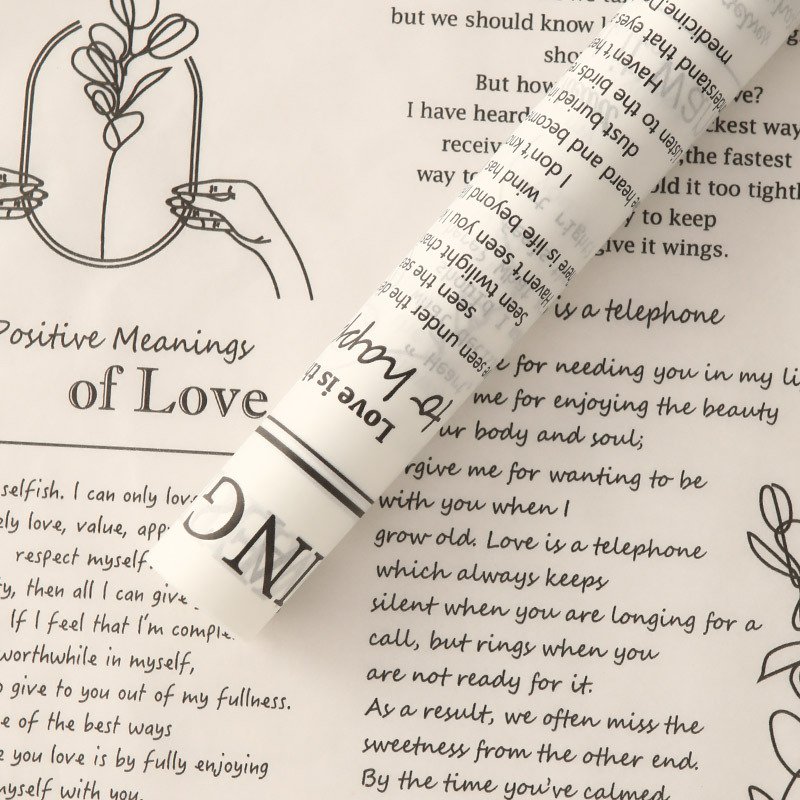 but we should know
But how
I have heard
ckest way
receiv
,the fastest
way to
old it too tightl
to keep
give it wings.
is a telephone
for needing you in my li
me for enjoying the beauty
ur body and soul;
rgive me for wanting to be
with you when I
grow old. Love is a telephone
which always keeps
silent when you are longing for a
call, but rings when you
are not ready for it.
As a result, we often miss the
sweetness from the other end.
By the time you've calmed
Positive Meanings
of Love
selfish. I can only lov
ely love, value, app
respect myself.
y, then all I can give
If I feel that I'm comple
worthwhile in myself,
o give to you out of my fullness.
e of the best ways
e you love is by fully enjoying
myself with you.
medicine.
derstand that eyes
Haven't he
listen to the birds
dust buried
e heard and becom
I don't kno
wind has
ere is life beyond
Haven't seen you
Seen twilight cha
seen the se
seen under the de
to happ
Love is th
ING